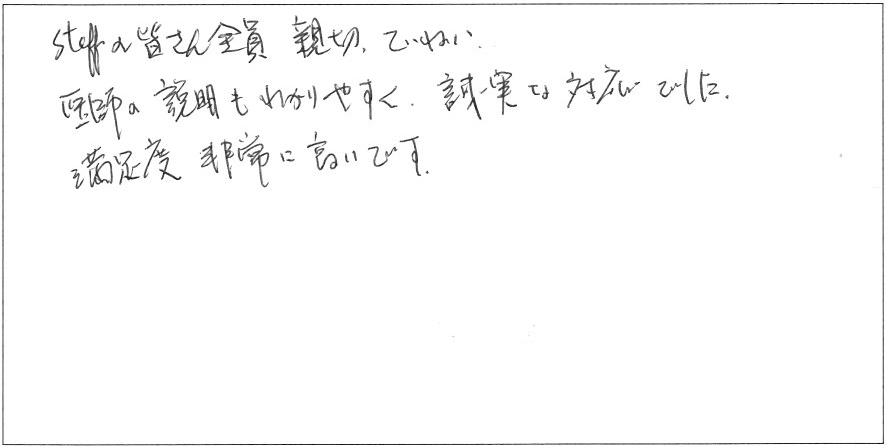 staffの皆さん全員 親切、ていねい.
医師の説明もわかりやすく、誠実な対応でした.
満足度 非常に高いです.